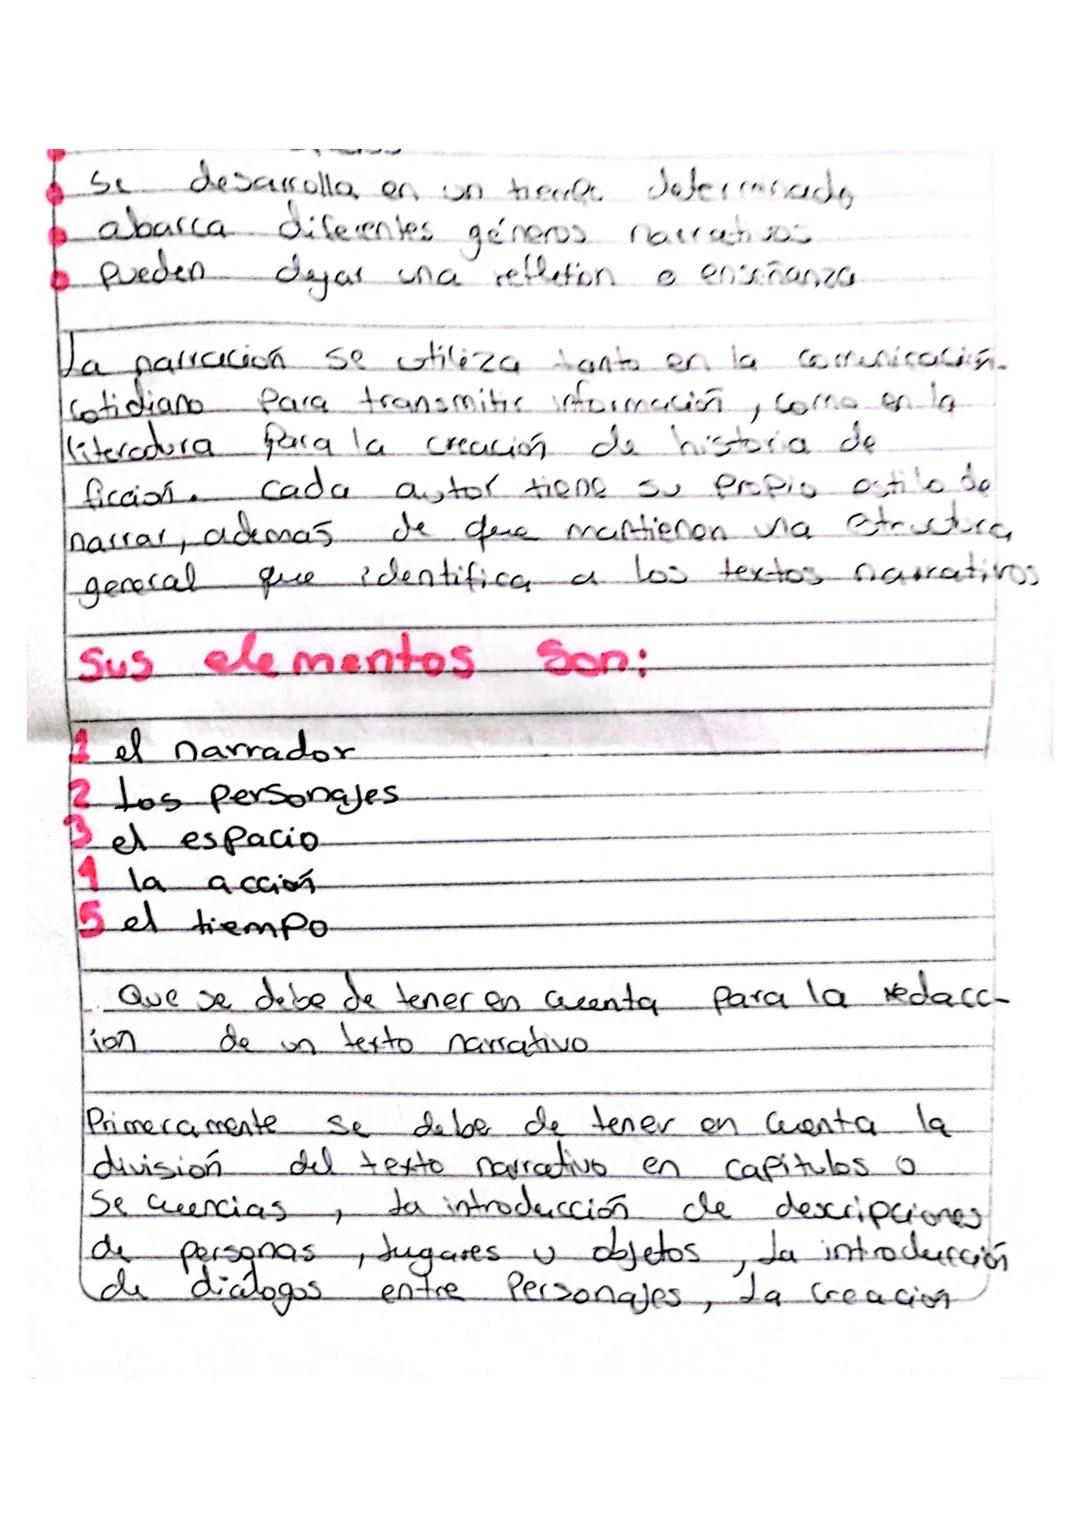 se desarrolla en un tiempo determinado
abarca diferentes géneros narrativos
pueden dejar una refletion o enseñanza
La narración se utiliza tanto en la comunicación
cotidiano para transmitir información, como en la
literadura para la creación de historia de
ficción. cada autor tiene su propio estilo de
narrar, ademas de que mantienen una estructura
general que identifica a los textos narrativos
Sus elementos son:
1 el narrador
2 los personajes
3 el espacio
4 la acción
5 el tiempo
Que se debe de tener en cuenta para la redacc-
ion de un texto narrativo
Primeramente se debe de tener en cuenta la
división del texto narrativo en capitulos o
secuencias, la introducción de descripciones
de personas, lugares u objetos, la introducción
de diálogos entre personajes, la creación